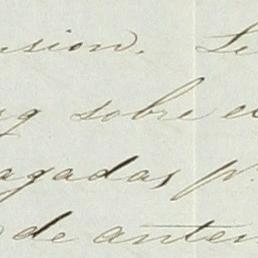 nsion. Le
sobre e
agadas p.
de anten